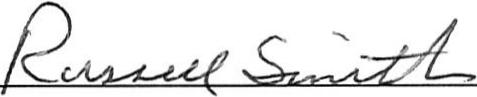 Russell Smith